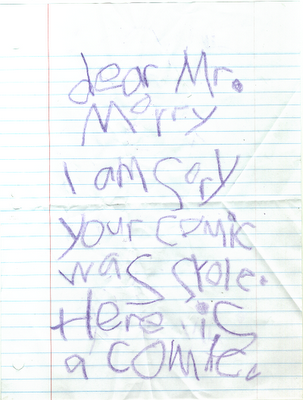 dear Mr.
Morry
I am Sory
your comic
was stole.
Here is
a comic.